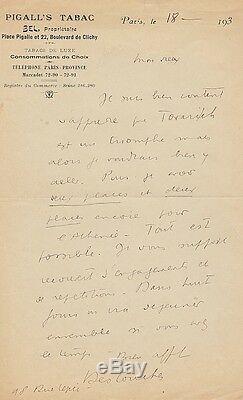 PIGALL'S TABAC
BEL, Propriétaire
Place Pigalle et 22, Boulevard de Clichy
TABACS DE LUXE
Consommations de Choix
TÉLÉPHONE PARIS-PROVINCE
Marcadet 72-90 - 72-91
Registre du Commerce - Seine 186.280
Paris, le 18 — 193
mon vieux
Je suis bien content
d'apprendre que Tovaritch
est un triomphe mais
alors je voudrais bien y
aller. Puis je avoir
deux places et deux
places encore pour
Athénée - Tout est
possible. Je vous suppose
d'engagements et
de répétitions. Dans huit
jours on ira déjeuner
ensemble si vous avez
le temps. Bien afft
Destouches
98 Rue Lepic
eBay